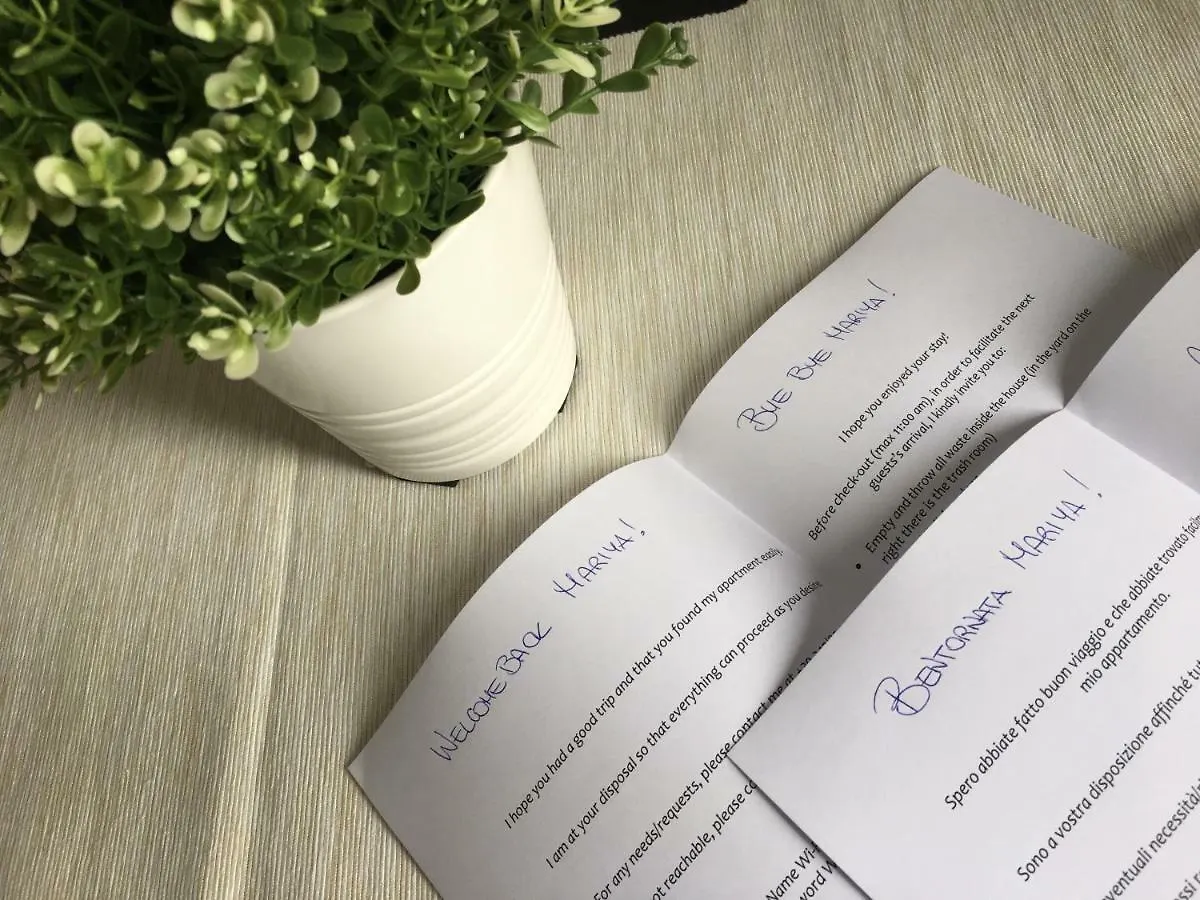 BYE BYE MARIYA!
I hope you enjoyed your stay!
Before check-out (max 11:00 am), in order to facilitate the next
guests's arrival, I kindly invite you to:
• Empty and throw all waste inside the house (in the yard on the
right there is the trash room)
WELCOME BACK MARIYA!
I hope you had a good trip and that you found my apartment easily.
I am at your disposal so that everything can proceed as you desire
For any needs/requests, please contact me at
not reachable, please
Name Wi-
BENTORNATA MARIYA!
Spero abbiate fatto buon viaggio e che abbiate trovato
mio appartamento.
Sono a vostra disposizione affinché
eventuali necessità